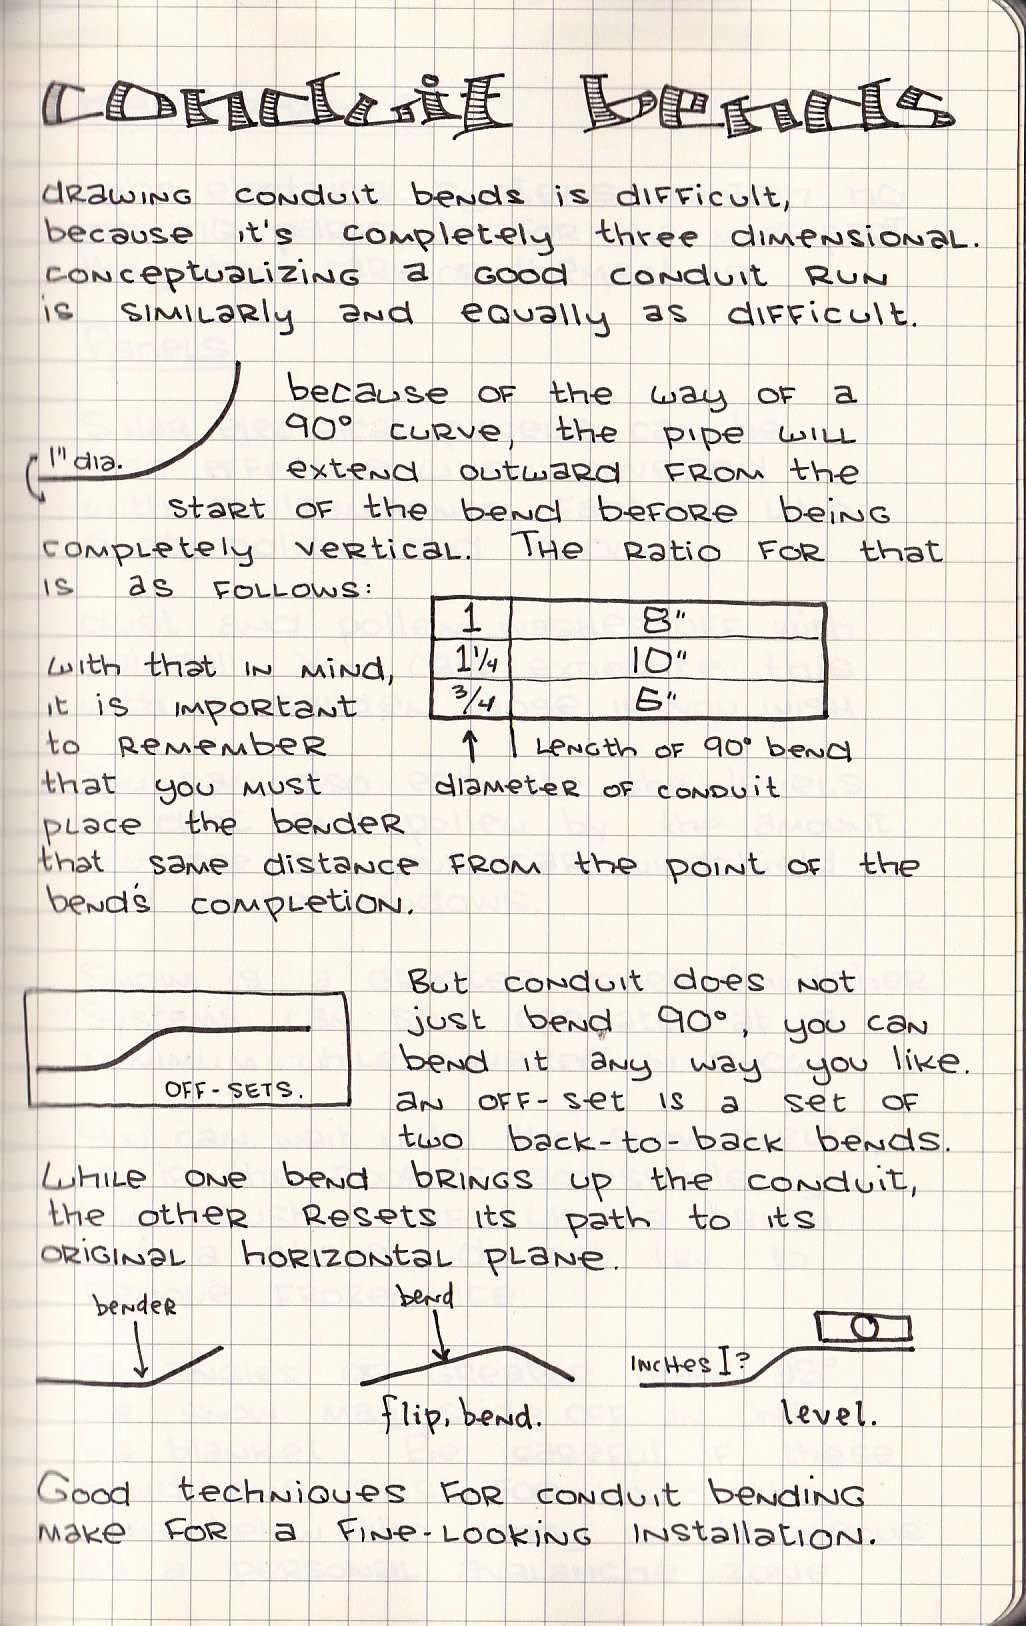 conduit bends
drawing conduit bends is difficult,
because it's completely three dimensional.
conceptualizing a good conduit run
is similarly and equally as difficult.
because of the way of a
90° curve, the pipe will
1" dia.
extend outward from the
start of the bend before being
completely vertical. The ratio for that
is as follows:
1 8"
1 1/4 10"
3/4 6"
length of 90° bend
diameter of conduit
with that in mind,
it is important
to remember
that you must
place the bender
that same distance from the point of the
bend's completion.
But conduit does not
just bend 90°, you can
bend it any way you like.
OFF-SETS.
an off-set is a set of
two back-to-back bends.
While one bend brings up the conduit,
the other resets its path to its
original horizontal plane.
bender
bend
flip, bend.
inches I?
level.
Good techniques for conduit bending
make for a fine-looking installation.